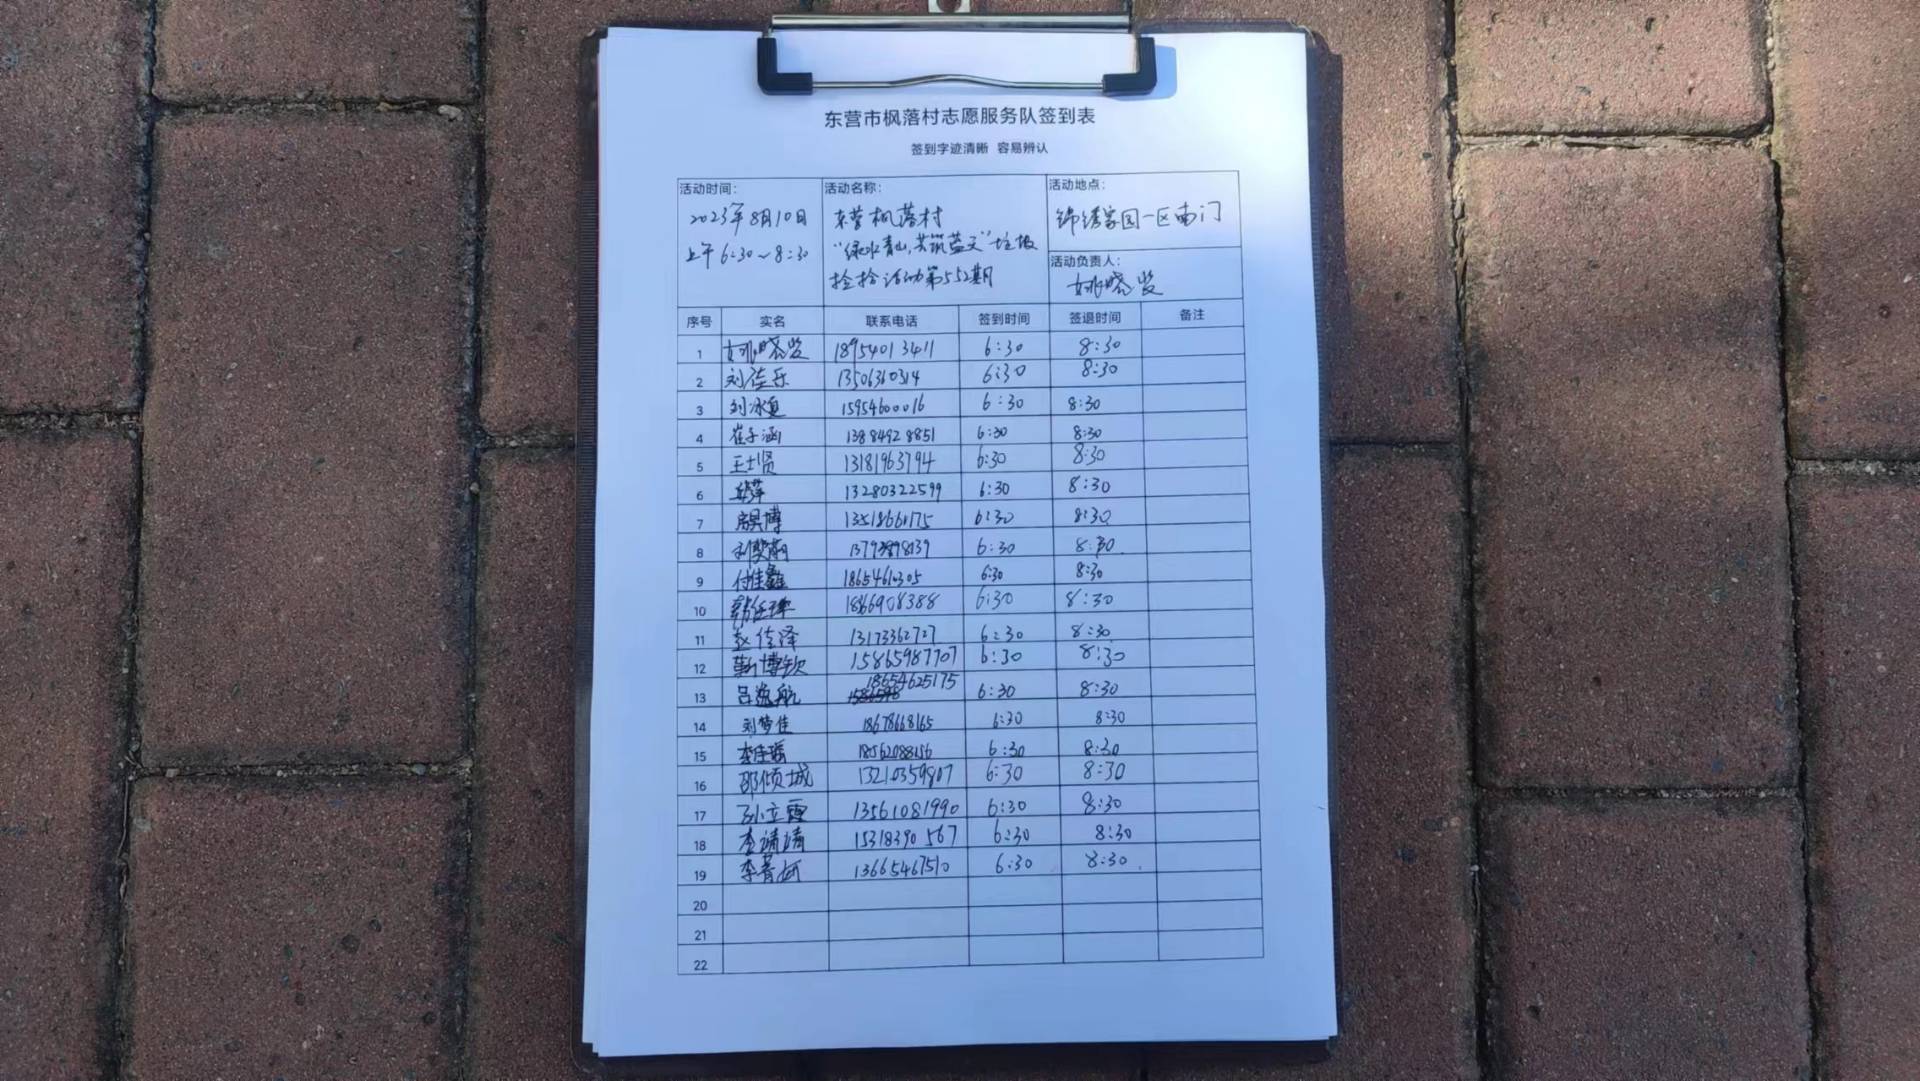 东营市枫落村志愿服务队签到表
签到字迹清晰 容易辨认
活动时间：
2023年8月10日
上午6:30~8:30
活动名称：
东营枫落村
“绿水青山,共筑蓝天”垃圾
捡拾活动第552期
活动地点：
锦绣家园一区南门
活动负责人：
姚晓
序号 实名 联系电话 签到时间 签退时间 备注
1 姚晓 18954013411 6:30 8:30
2 刘佳乐 13506360314 6:30 8:30
3 刘冰 15954600016 6:30 8:30
4 崔子涵 13884928851 6:30 8:30
5 王士贤 13181963794 6:30 8:30
6 13280322599 6:30 8:30
7 博 13518660175 6:30 8:30
8 6:30 8:30
9 付佳鑫 18654610305 6:30 8:30
10 6:30 8:30
11 赵佳泽 13173362727 6:30 8:30
12 靳博钦 15865987707 6:30 8:30
13 吕逸航 18654625175 6:30 8:30
14 刘梦佳 18678668165 6:30 8:30
15 李佳瑶 18562088156 6:30 8:30
16 邵倾城 13210359807 6:30 8:30
17 孙立霞 13561081990 6:30 8:30
18 李靖靖 15318390567 6:30 8:30
19 李 13665467510 6:30 8:30
20
21
22